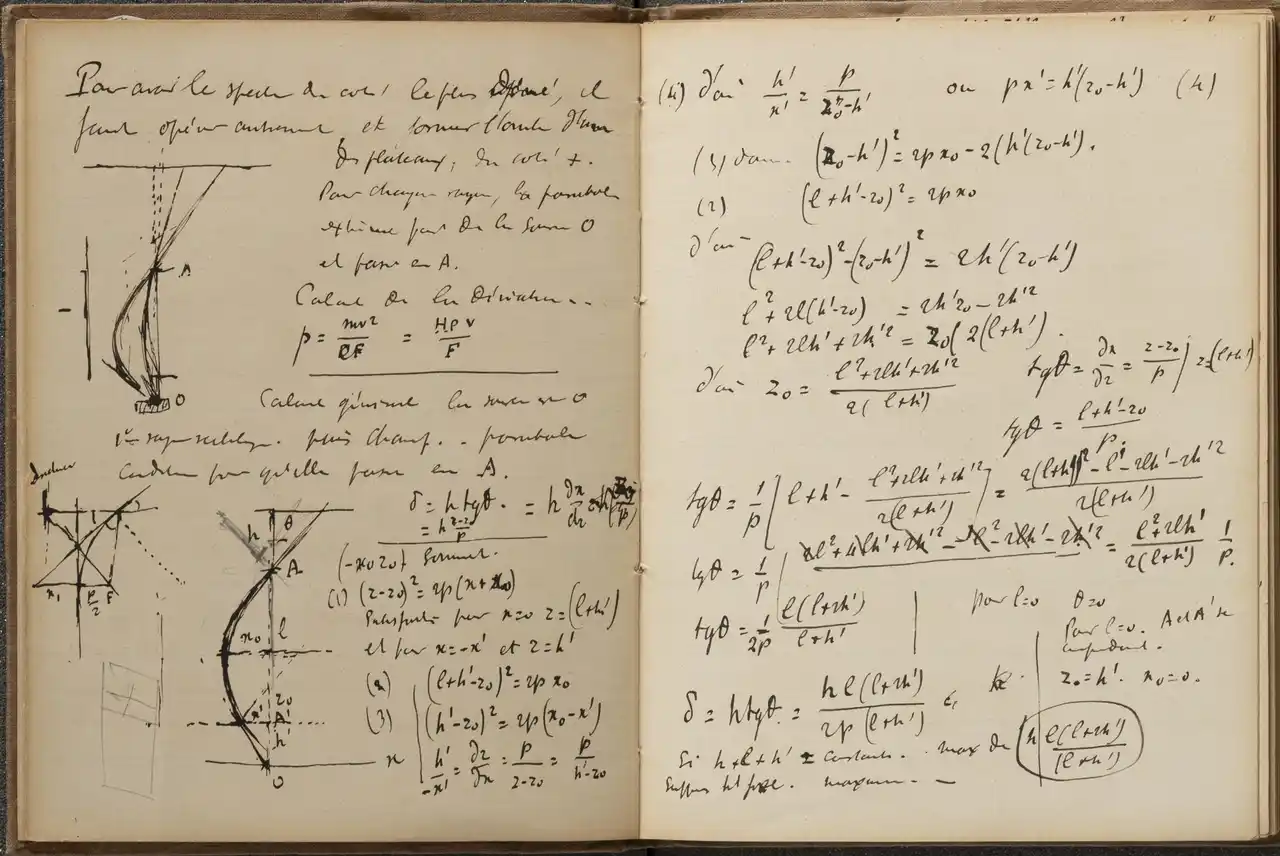 Pour avoir le spectre du côté le plus dévié, il
faut opérer autrement et former l'
des plateaux, du côté +.
Pour chaque rayon, la parabole
extrême part de la source O
et passe en A.
A
Calcul de la déviation ..
p = mv²/eF = Hρv/F
O
Calcul général la source en O
1er rayon rectiligne. puis champ. - parabole
Condition pour qu'elle passe en A.
δ = h tgθ. = h ∂x/∂z =
= h (z-z₀)/p
h θ
(-x₀ z₀) Sommet.
A
(1) (z-z₀)² = 2p(x+x₀)
x₁ p/2 F
Satisfaite par x=0 z=(l+h')
x₀ l
et par x=-x' et z=h'
(2) (l+h'-z₀)² = 2p x₀
z₀
x' A'
(3) (h'-z₀)² = 2p(x₀-x')
h'
x
h'/-x' = ∂z/∂x = p/(z-z₀) = p/(h'-z₀)
O
(4) d'où h'/x' = p/(z₀-h') ou px' = h'(z₀-h') (4)
(3) donne (z₀-h')² = 2px₀ - 2(h'(z₀-h').
(2) (l+h'-z₀)² = 2px₀
d'où
(l+h'-z₀)² - (z₀-h')² = 2h'(z₀-h')
l² + 2l(h'-z₀) = 2h'z₀ - 2h'²
l² + 2lh' + 2h'² = z₀(2(l+h').
d'où z₀ = (l²+2lh'+2h'²)/2(l+h')
tgθ = ∂x/∂z = (z-z₀)/p ) z=(l+h')
tgθ = (l+h'-z₀)/p.
tgθ = 1/p [l+h' - (l²+2lh'+2h'²)/2(l+h')] = (2(l+h')² - l² - 2lh' - 2h'²)/2(l+h')
tgθ = 1/p ( 2l²+4lh'+2h'² - l² - 2lh' - 2h'² = (l²+2lh')/2(l+h') 1/p.
tgθ = 1/2p l(l+2h')/(l+h')
pour l=0 θ=0
Pour l=0. A et A' se
confondent.
z₀=h'. x₀=0.
δ = h tgθ. = hl(l+2h')/2p(l+h')
Si h+l+h' = constante. max de h l(l+2h')/(l+h')
fixe. maximum. -